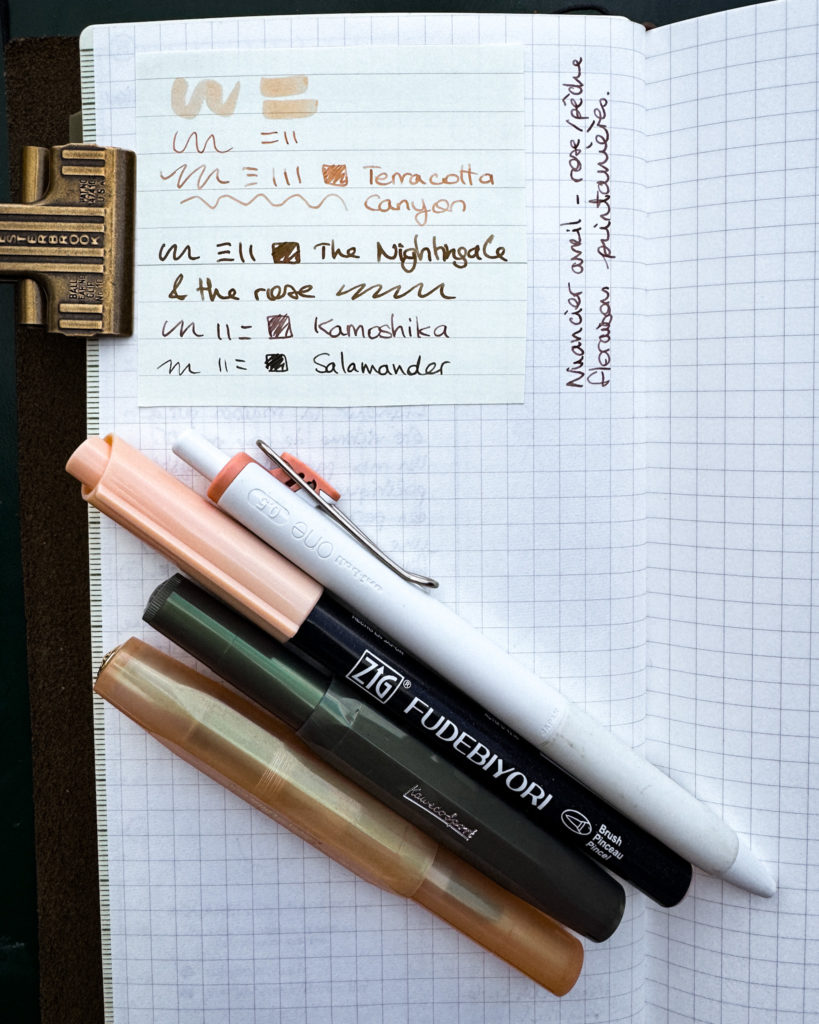 Terracotta
Canyon
The Nightingale
& the rose
Kamoshika
Salamander
Nuancier avril - rose/pêche
floraison printanières.
ESTERBROOK
uni-ball one 0.5
ZIG® FUDEBIYORI
Brush
Pinceau
Pincel
Kaweco Sport